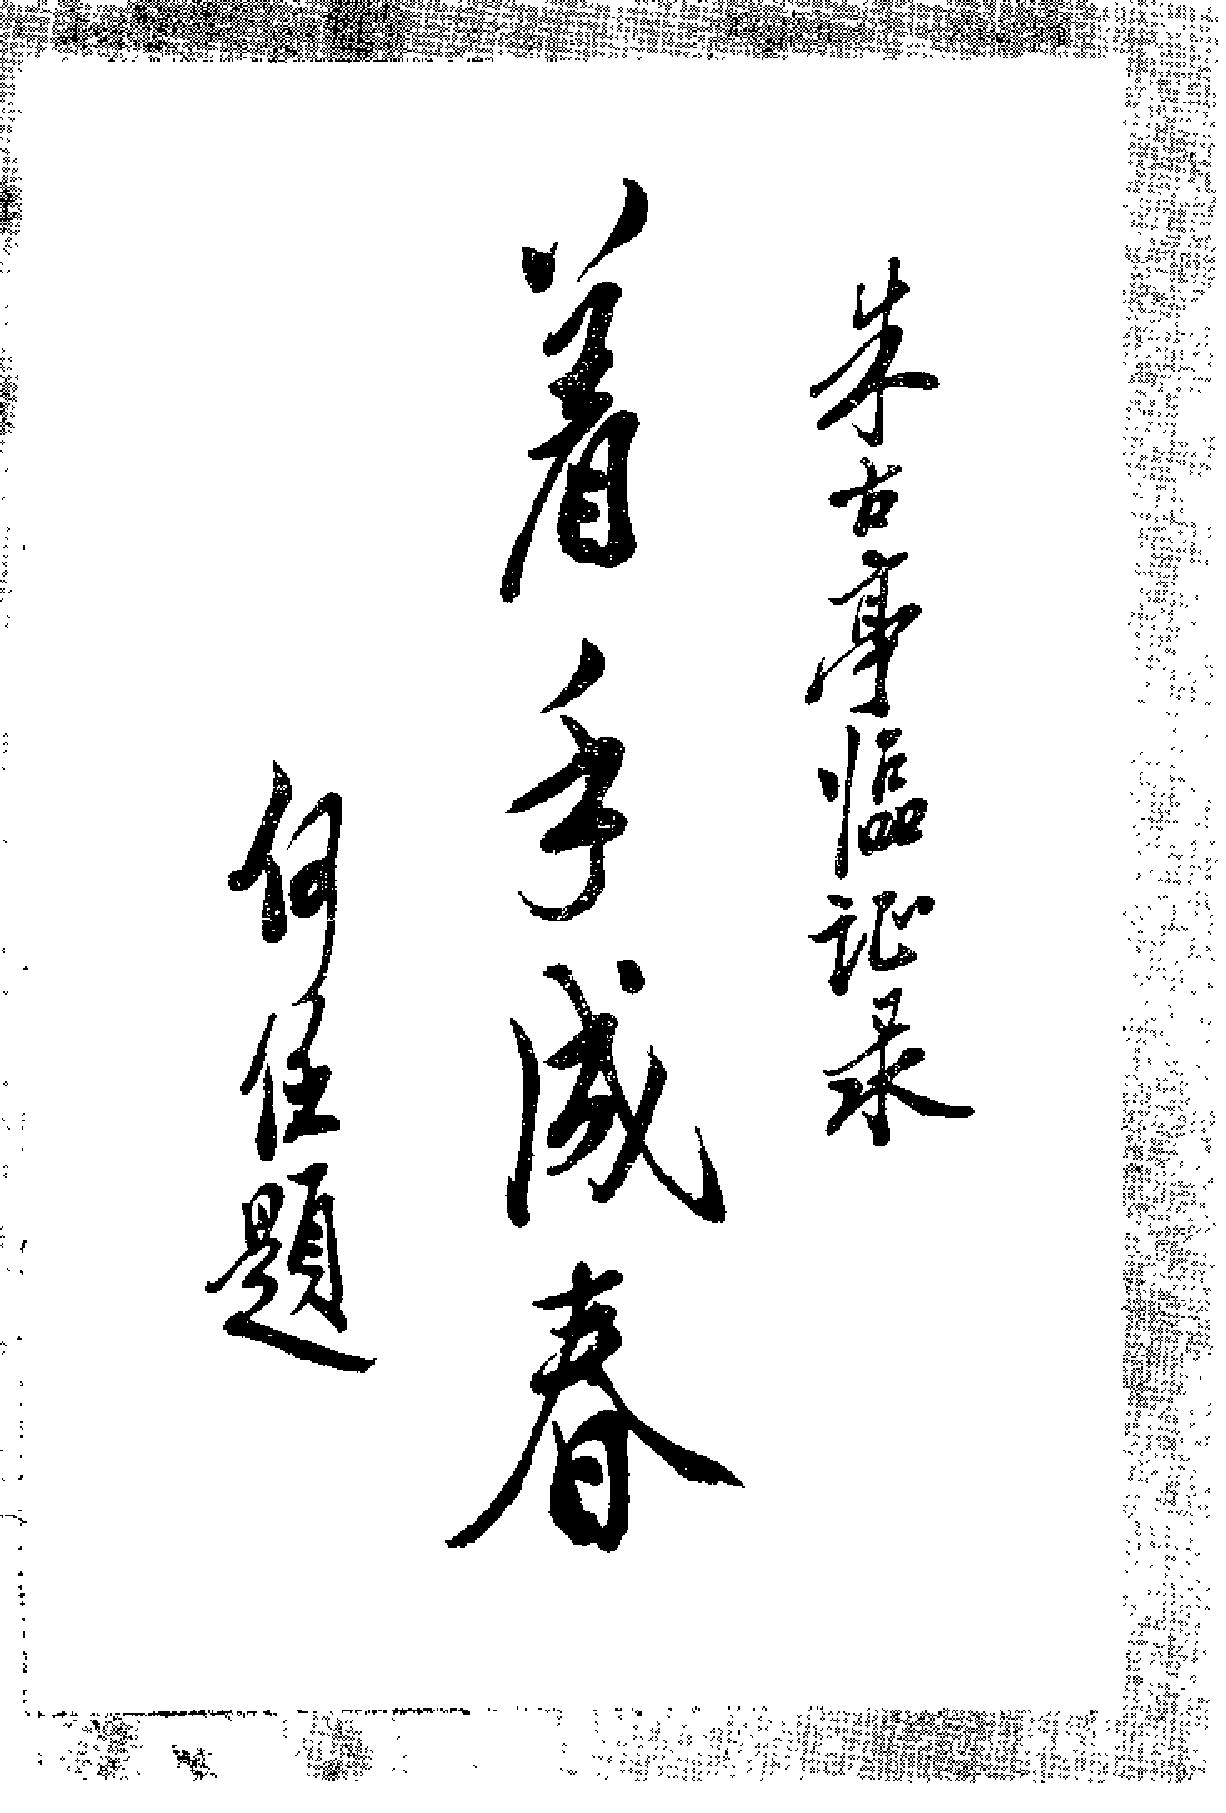 朱古亭临证录
着手成春
何任题